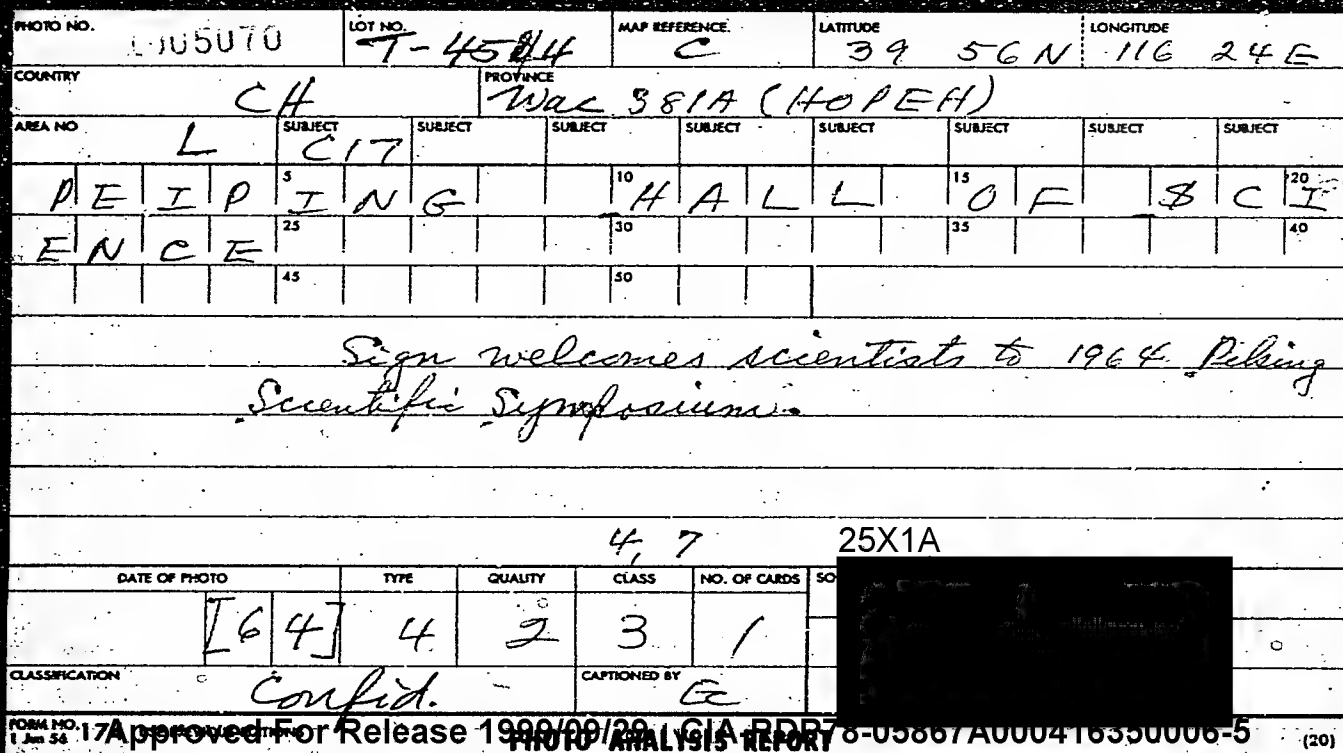 PHOTO NO. LOT NO. T-4544 MAP REFERENCE. C LATITUDE 39 56N LONGITUDE 116 24E
COUNTRY CH PROVINCE Wac 381A (HOPEH)
AREA NO L SUBJECT C17 SUBJECT SUBJECT SUBJECT SUBJECT SUBJECT SUBJECT SUBJECT
PEIP 5 ING 10 HALL 15 OF SC 20 I
ENCE 25 30 35 40
45 50
Sign welcomes scientists to 1964 Peking
Scientific Symposium.
4, 7 25X1A
DATE OF PHOTO TYPE QUALITY CLASS NO. OF CARDS SO
[64] 4 2 3 1
CLASSIFICATION Confid. CAPTIONED BY
FORM NO. 17 Approved For Release 1999/09/29 : CIA-RDP78-05867A000416350006-5
1 Jun 56 PHOTO ANALYSIS REPORT (20)